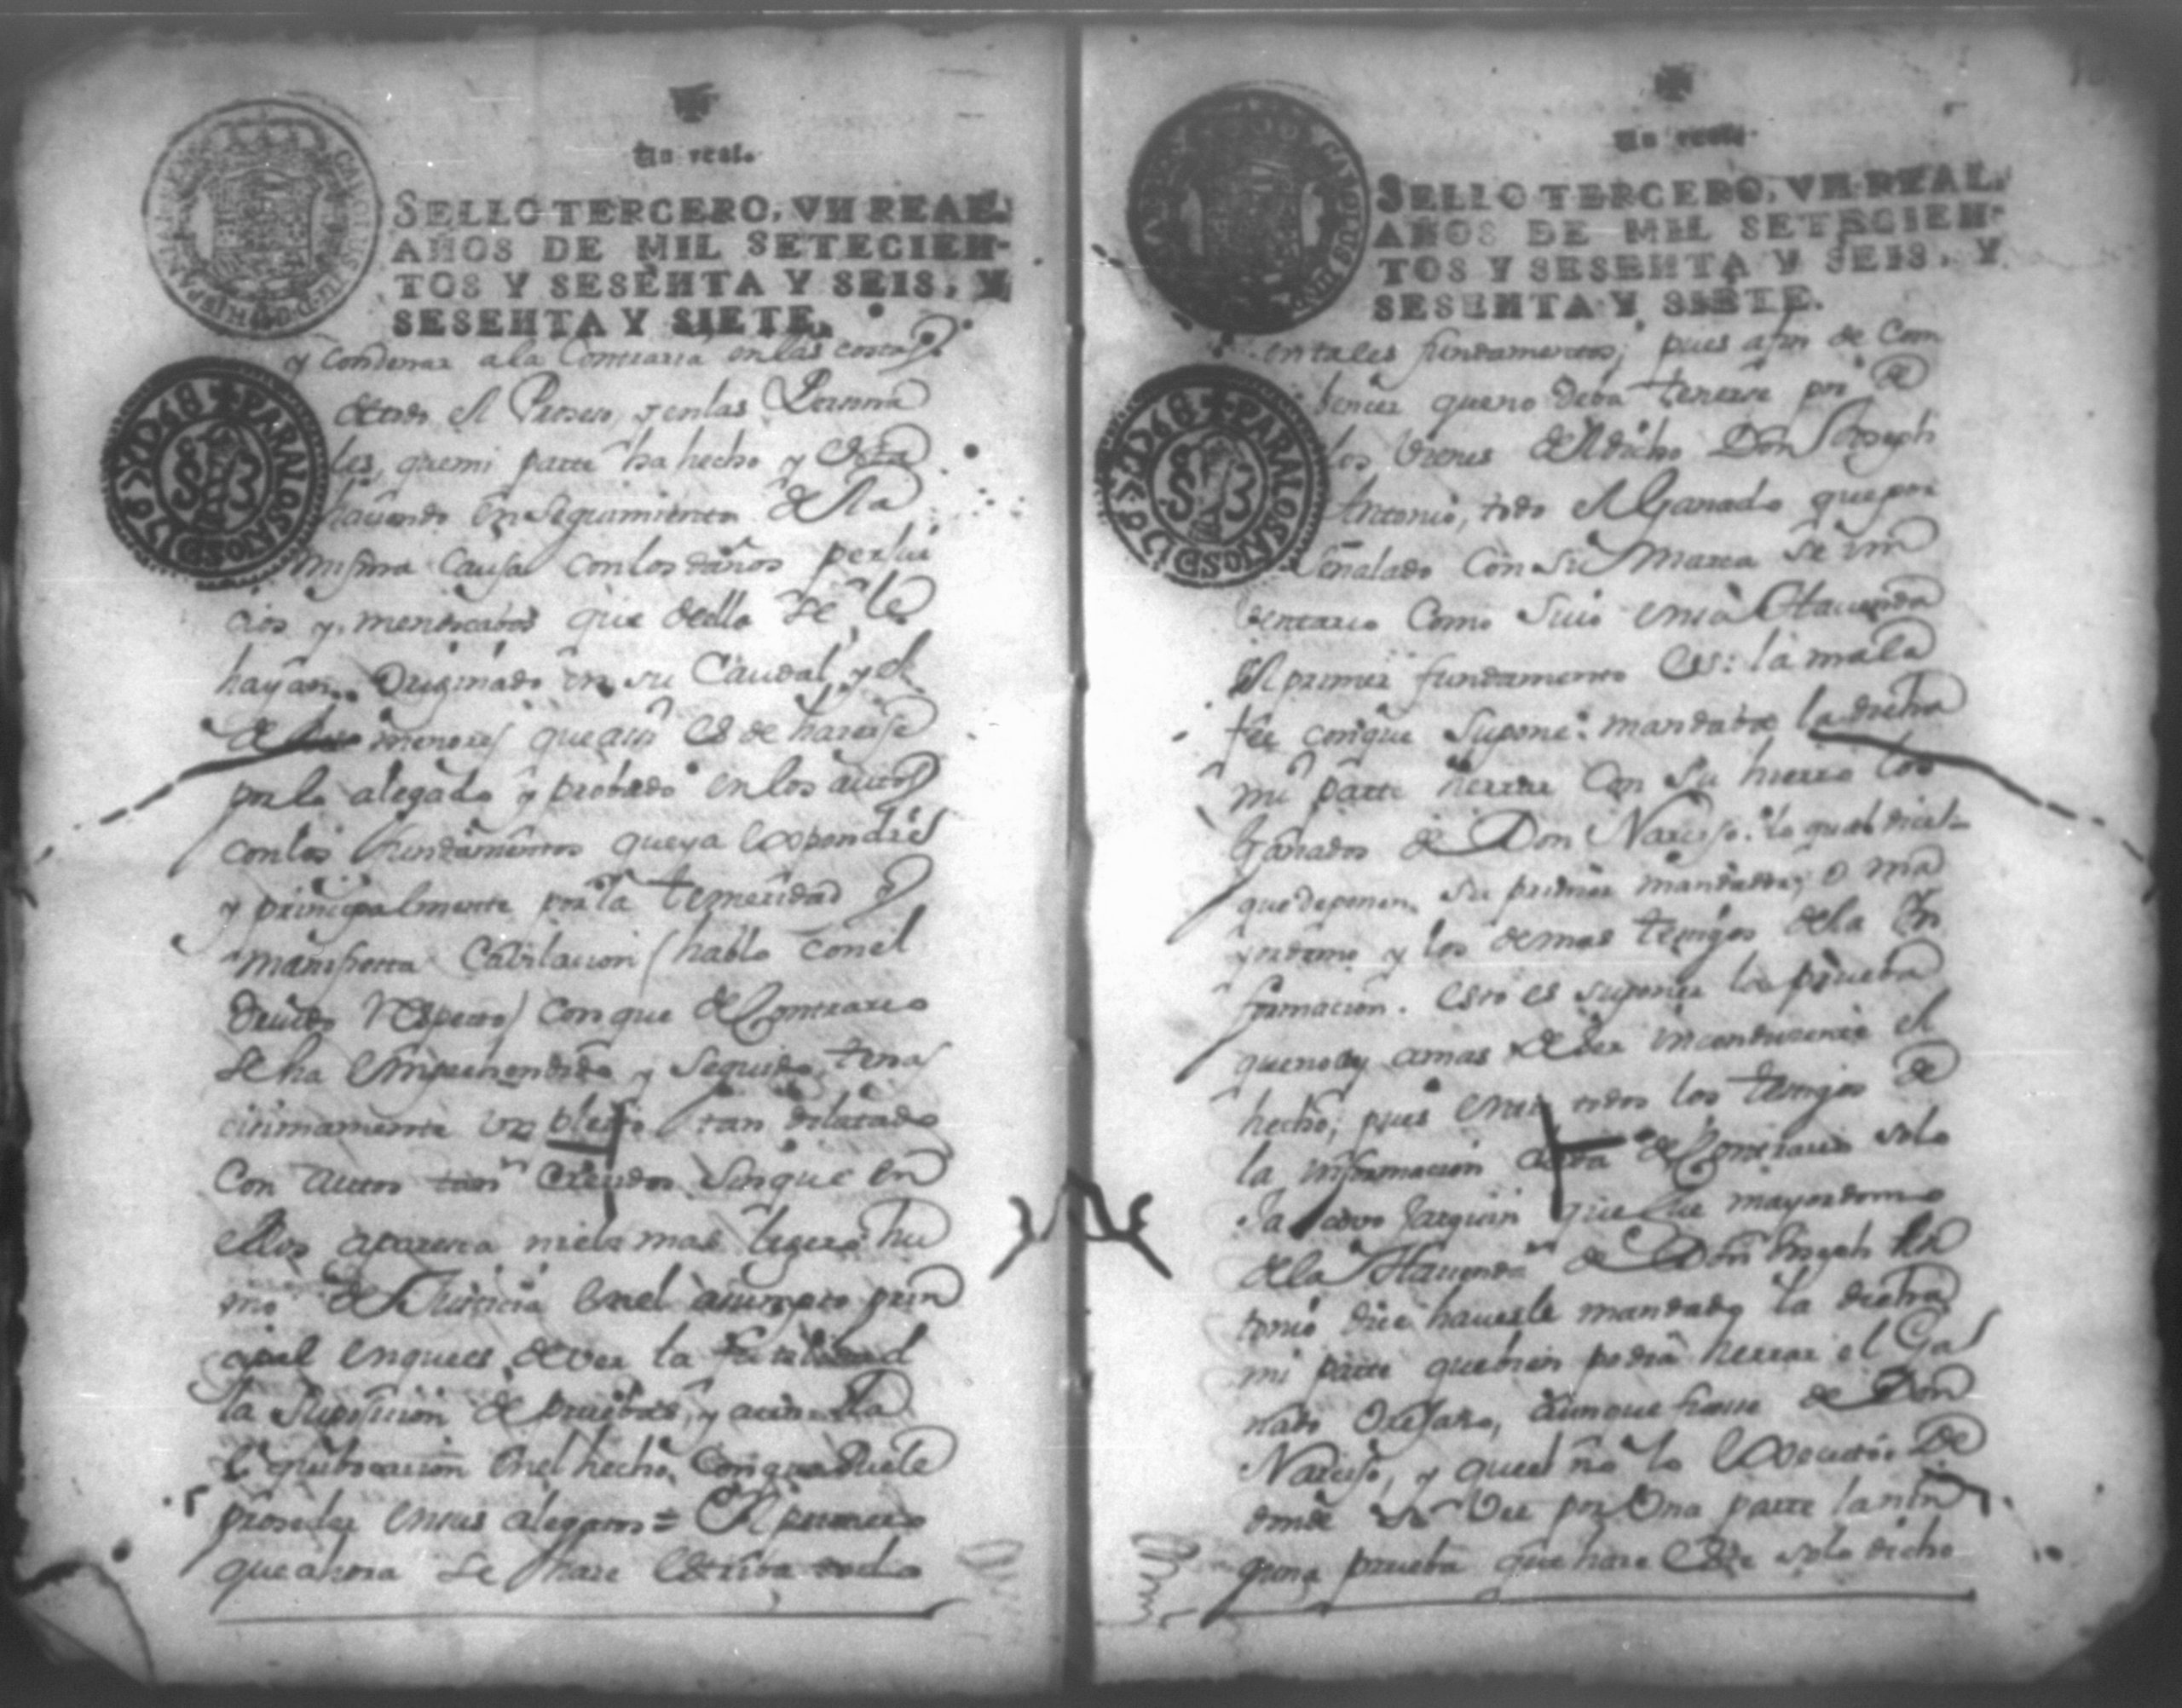 Un real.
SELLO TERCERO, VN REAL,
AÑOS DE MIL SETECIEN-
TOS Y SESENTA Y SEIS, Y
SESENTA Y SIETE.
PARA LOS AÑOS D 1767 Y D 68
S 3
y condenar a la Contraria en las costas
de todo el Proseso, y en las Persona
les, que mi parte ha hecho y esta
haciendo en seguimiento de la
misma Causa con los daños perjui
cios y menoscabos que de ello se le
hayan originado en su Caudal y el
de menores que asi es de hacerse
por lo alegado y probado en los autos
con los fundamentos que ya expondre
y principalmente por la temeridad y
manifiesta Cabilacion (hablo con el
devido respecto) con que de Contrario
se ha emprehendido y seguido tena
cisimamente un pleito tan dilatado
con autos tan crecidos sin que en
ellos aparesca ni el mas ligero hu
mo de Justicia en el asumpto prin
cipal en que es de ver la
la suposicion de pruebas, y aun la
equibocacion en el hecho con que suele
proseder en sus alegatos = El primero
que ahora se hace estriba todo
Un real.
SELLO TERCERO, VN REAL,
AÑOS DE MIL SETECIEN-
TOS Y SESENTA Y SEIS, Y
SESENTA Y SIETE.
PARA LOS AÑOS D 1767 Y D 68
S 3
en tales fundamentos, pues a fin de Con
bencer que no deba tenerse por de
los bienes del dicho Don Joseph
Antonio, todo el Ganado que por
señalado con su Marca se in
ventario como suio en su Hacienda
El primer fundamento es: la mala
fee con que supone: mandaba la dicha
mi parte herrar con su hierro los
Ganados de Don Narciso: lo qual dice
que deponen su primer mandador, o ma
yordomo y los demas testigos de la In
formacion. Esto es suponer la prueba
que no ay a mas de ser inconducente el
hecho; pues entre todos los testigos de
la informacion dada de Contrario solo
Jarquin que fue mayordomo
de la Hacienda de Don Joseph An
tonio dice haverle mandado la dicha
mi parte que bien podia herrar el Ga
nado Orejano, aunque fuese de Don
Narciso, y que el no lo executó. De
donde se vee por una parte la nin
guna prueba que hace este solo dicho